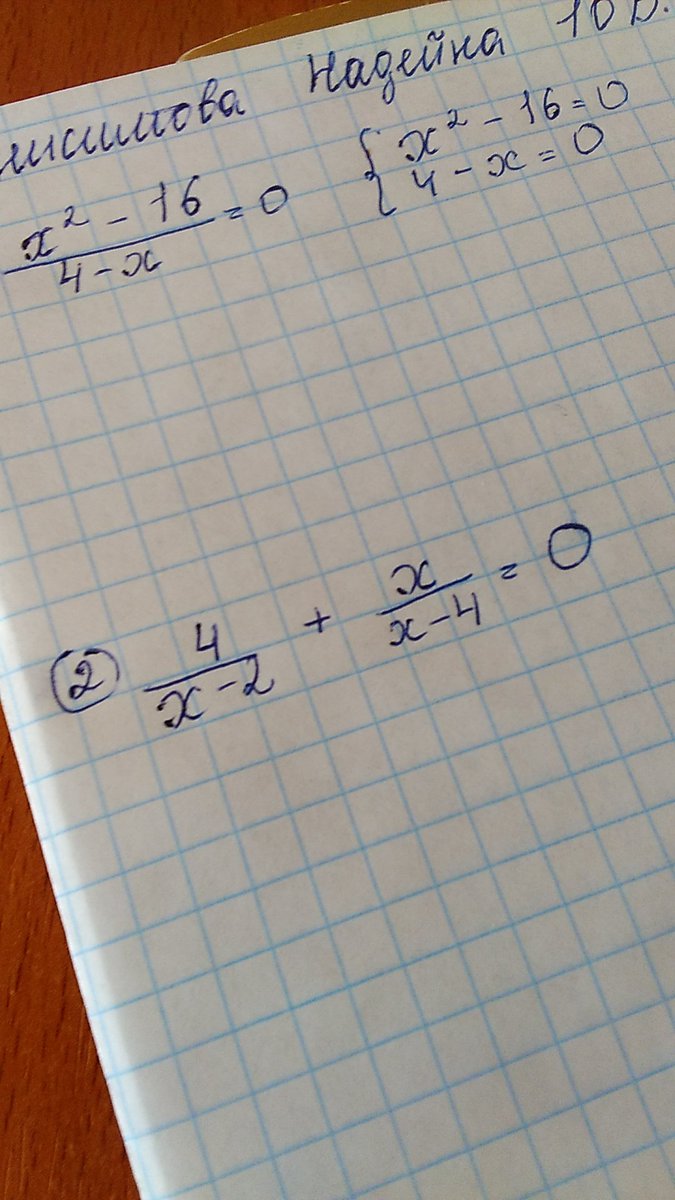 Надейна 10 В.
x² - 16 / 4 - x = 0
{ x² - 16 = 0
4 - x = 0
② 4 / x - 2 + x / x - 4 = 0